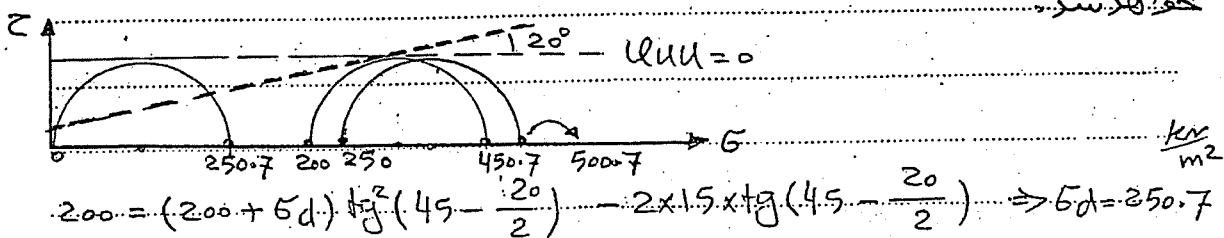 خواهد شد.
τ
20°
φuu = 0
0 250.7 200 250 450.7 500.7 σ kN/m²
200 = (200 + σd) tg²(45 - 20/2) - 2×15×tg(45 - 20/2) ⇒ σd = 250.7